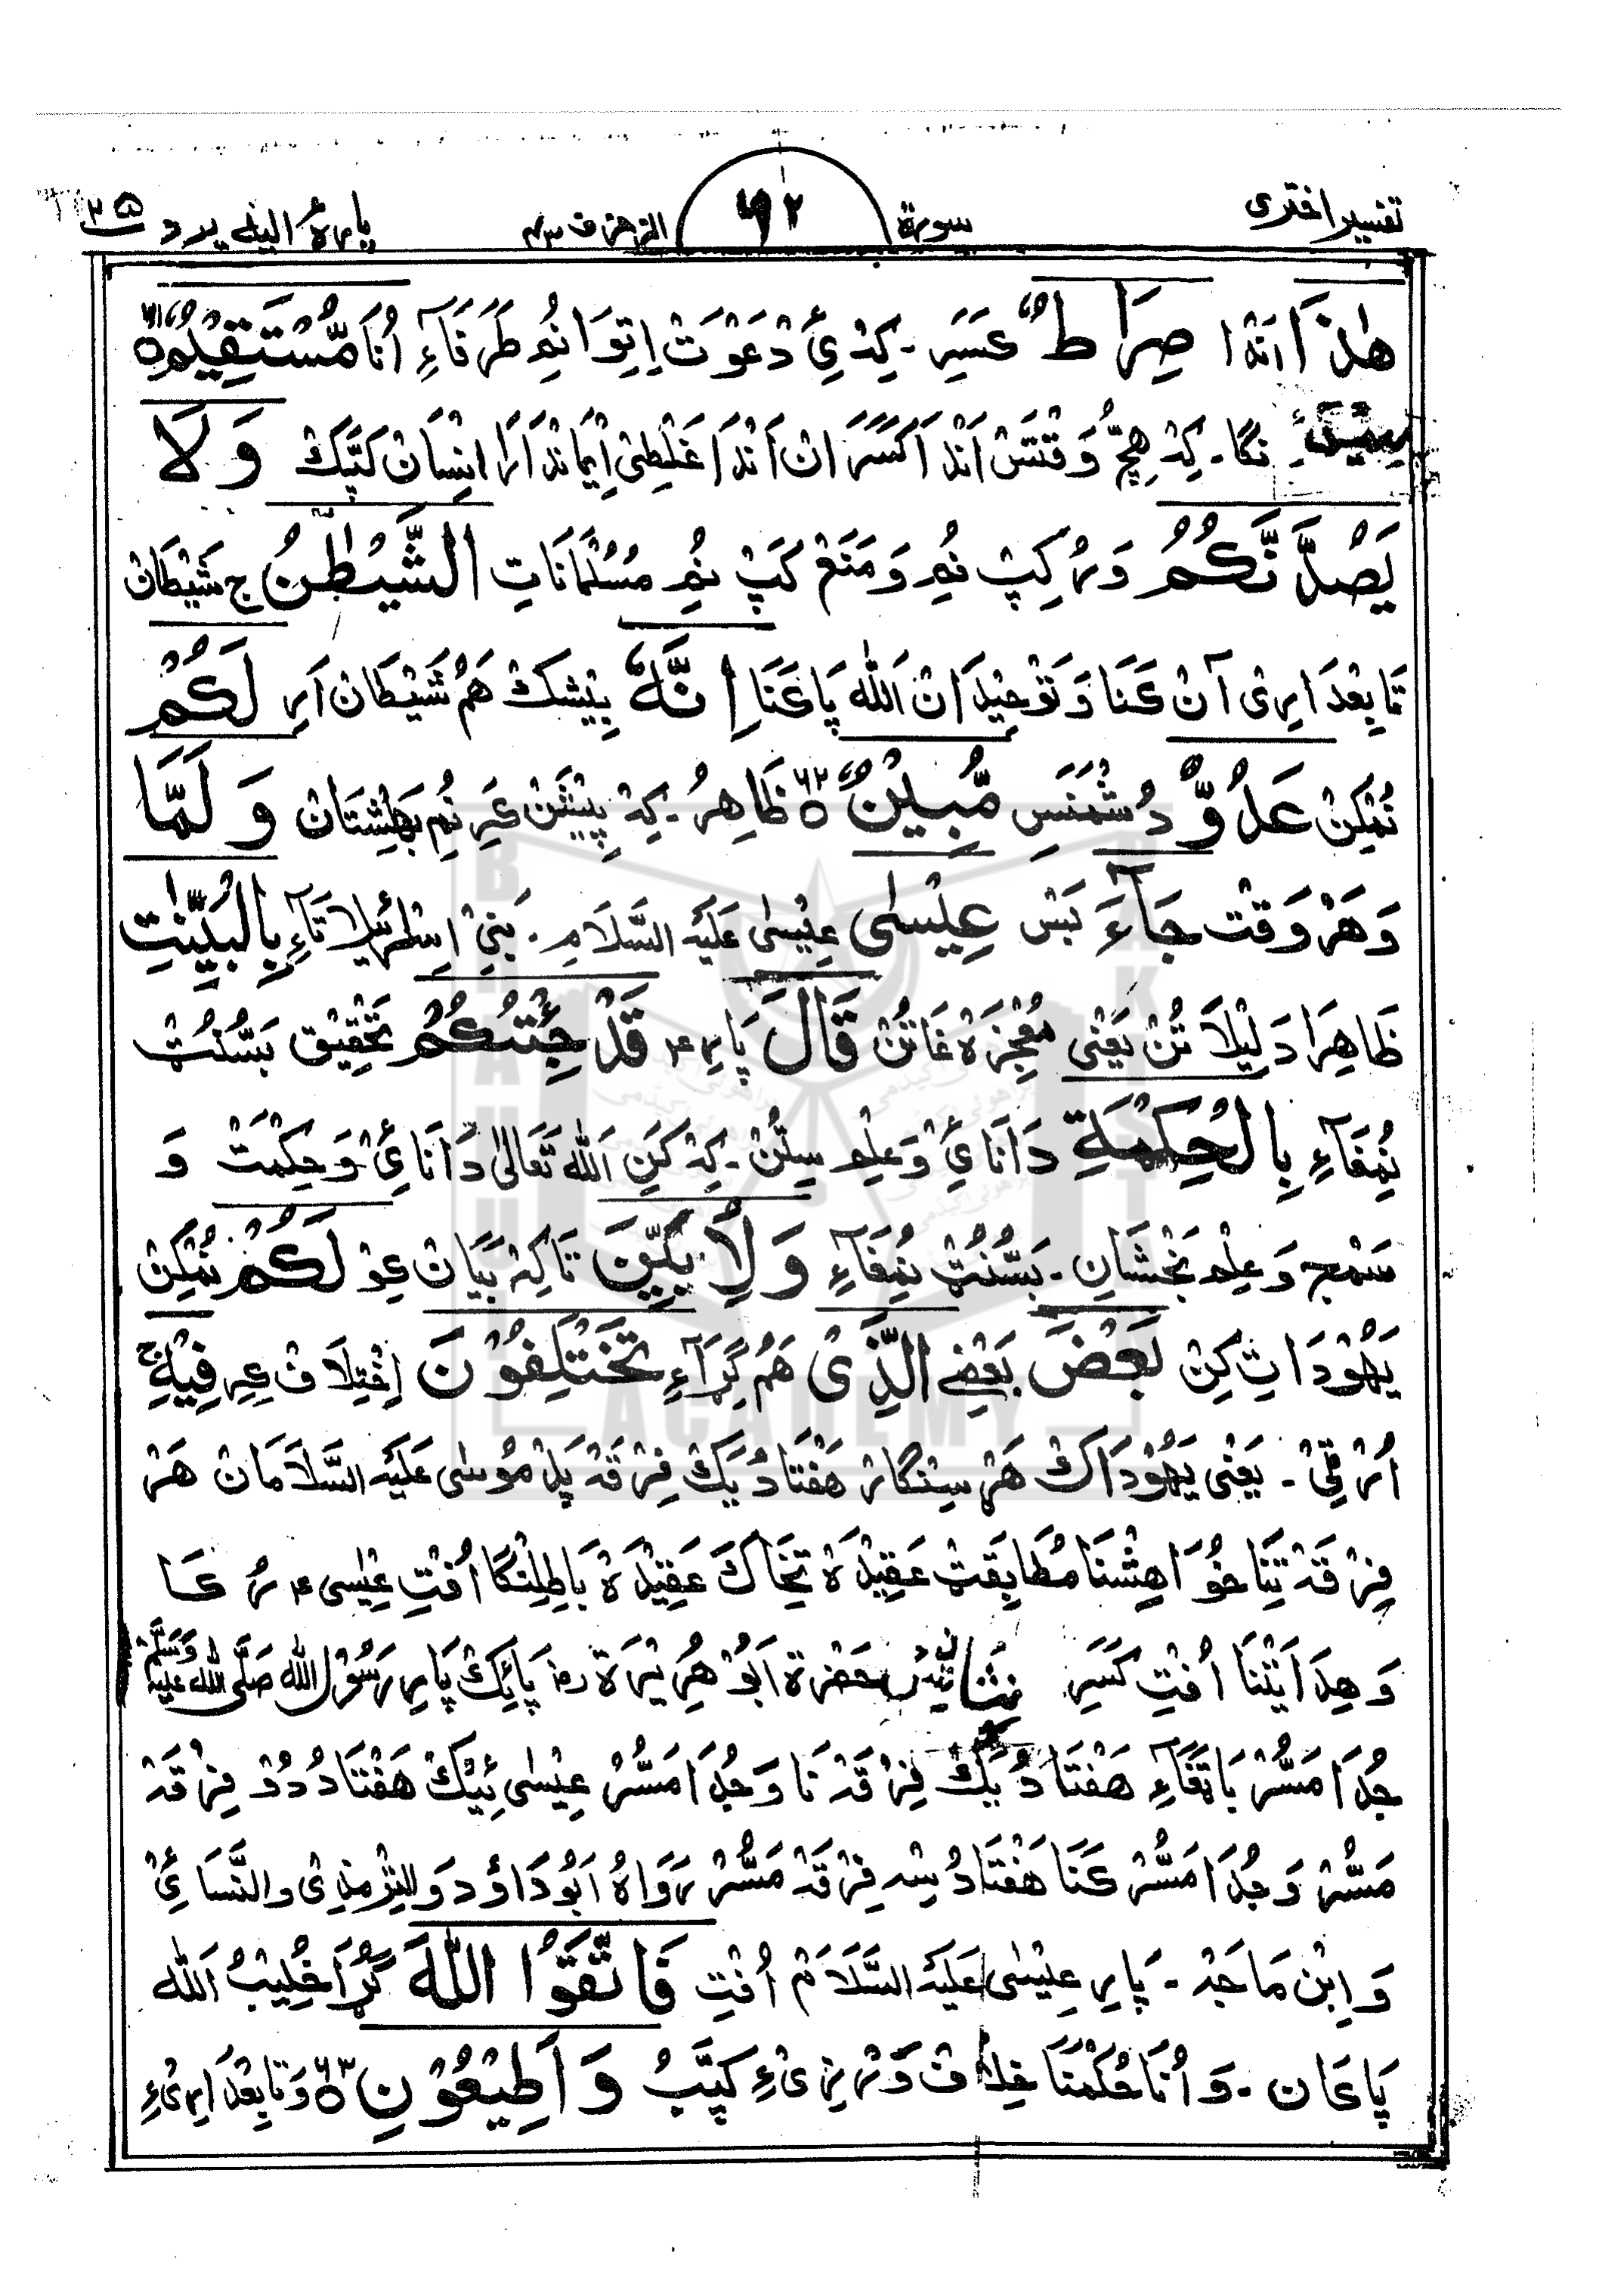 تفسير اختری
سورة
۹۲
الزخرف ۴۳
پارهٔ الیه یرد ۲۵
هٰذَا اَنْدَا صِرَاطٌ كَسَرِ۔ كِہ ئِ دَعْوَتْ اِتِوَا نُم طَرَفَآءِ اُنَا مُّسْتَقِيْمٌ ۝۶۱
نگا۔ كِہ هِچّ وَقْتَسْ اَنْدَا كَسَرَانْ اَنْدَا غَلِطِیْ اِیْمَانْدَارَا اِنْسَانْ كَتَّكْ وَ لَا
يَصُدَّنَّكُمُ وَرُكِپْ نُم وَ مَنَعْ كَپْ نُمِ مُسُلْمَانَاتِ الشَّيْطٰنُ ج شَیْطَانْ
تَابِعْدَارِیْ آنْ كَنَا وَ تَوْحِیْدَانْ اَللّٰه پَاغَنَا اِنَّهٗ بِیْشِكْ هَمْ شَیْطَانْ اَرِ لَكُمْ
نُمْكِنْ عَدُوٌّ دُشْمَنَسِ مُّبِيْنٌ ۝۶۲ ظَاهِرُ۔ كِہْ پِیْشَنْ كَرِ نُمِ بَهِشْتَانْ وَ لَمَّا
وَ هَرْ وَقْتْ جَآءَ بَسْ عِيْسٰى عِیْسٰی عَلَيْهِ السَّلَامِ۔ بَنِیْ اِسْرَئِیْلَاتَآءِ بِالْبَيِّنٰتِ
ظَاهِرَا دَلِیْلَاتُنْ یَعْنِی مُعْجِزَهْ غَاتُنْ قَالَ پَارِ ء قَدْ جِئْتُكُمْ تَحْقِیْق بَسُّنُتْ
نُمْفَآءِ بِالْحِكْمَةِ دَانَائِیْ وَ عِلْم سِتُنْ۔ كِہ كَنِ اَللّٰه تَعَالٰی دَانَائِیْ وَ حِكْمَتْ وَ
سَمْجِ وَ عِلْم بَخْشَانِ۔ بَسُّنُتْ نُمْفَآءِ وَ لِاُبَيِّنَ تَاكِہْ بَیَانْ كِوْ لَكُمْ نُمْكِنْ
یَهُوْدَاتِ كِنْ بَعْضَ بَعْضِے الَّذِیْ هَمُ گِرَآءِ تَخْتَلِفُوْنَ اِخْتِلَافْ كِرِ فِيْهِ ج
اُرْ ٹِیْ۔ یَعْنِی یَهُوْدَاكْ هَرْ سِنْگَارْ هَفْتَادُ یَكْ فِرْقَہْ پِدْ مُوسٰی عَلَيْهِ السَّلَامَانْ هَرْ
فِرْقَہْ تَنَا خُوَاهِشْنَا مُطَابِقَتْ عَقِیْدَهْ تِخَاكَ عَقِیْدَهْ بَاطِلِنْگَا اُفْتِ عِیْسٰی ء رُ كَا
وَ هِدَایَتْنَا اُفْتِ كَسَرِ حَضْرَة اَبُوْ هُرَیْرَة رض پَائِكْ پَارِ رَسُوْلُ اللّٰه صَلَّى اللّٰه عَلَيْهِ وَسَلَّمْ
جُدَا مَسُّرْ بَاتَفَاءِ هَفْتَادُ یَكْ فِرْقَہْ نَا وَ جُدَا مَسُّرْ عِیْسٰی ئِیْكْ هَفْتَادُ دُوْ فِرْقَہْ
مَسُّرْ وَ جُدَا مَسُّرْ كَنَا هَفْتَادُ سِہ فِرْقَہْ مَسُّرْ رَوَاهُ اَبُوْدَاؤُد وَ التِّرْمِذِیْ وَ النَّسَائِیْ
وَ اِبْنِ مَاجَہْ۔ پَارِ عِیْسٰی عَلَيْهِ السَّلَامْ اُفْتِ فَاتَّقُوا اللّٰهَ گُڑَا خُلِیْبُ اَللّٰه
پَاغَانْ۔ وَ اُنَا حُكْمْنَا خِلَافْ وَرْزِیْءِ كَپَّبُ وَ اَطِيْعُوْنِ ۝۶۳ وَ تَابِعْدَارِیْءِ